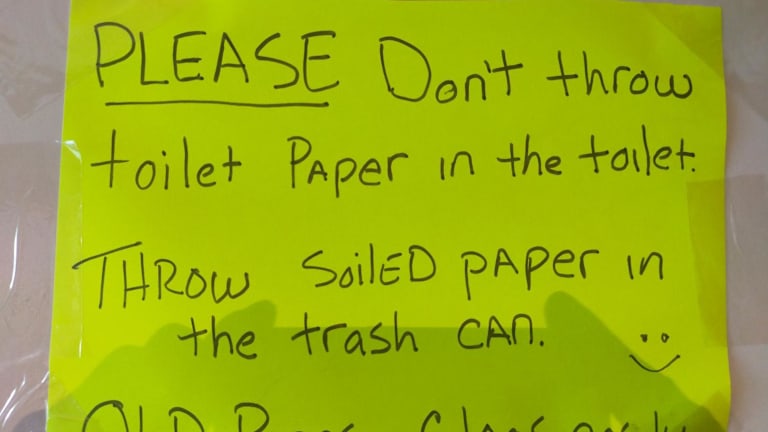 PLEASE Don't throw
toilet PAper in the toilet.
THROW SoilED pAper in
the trash CAn.
OLD